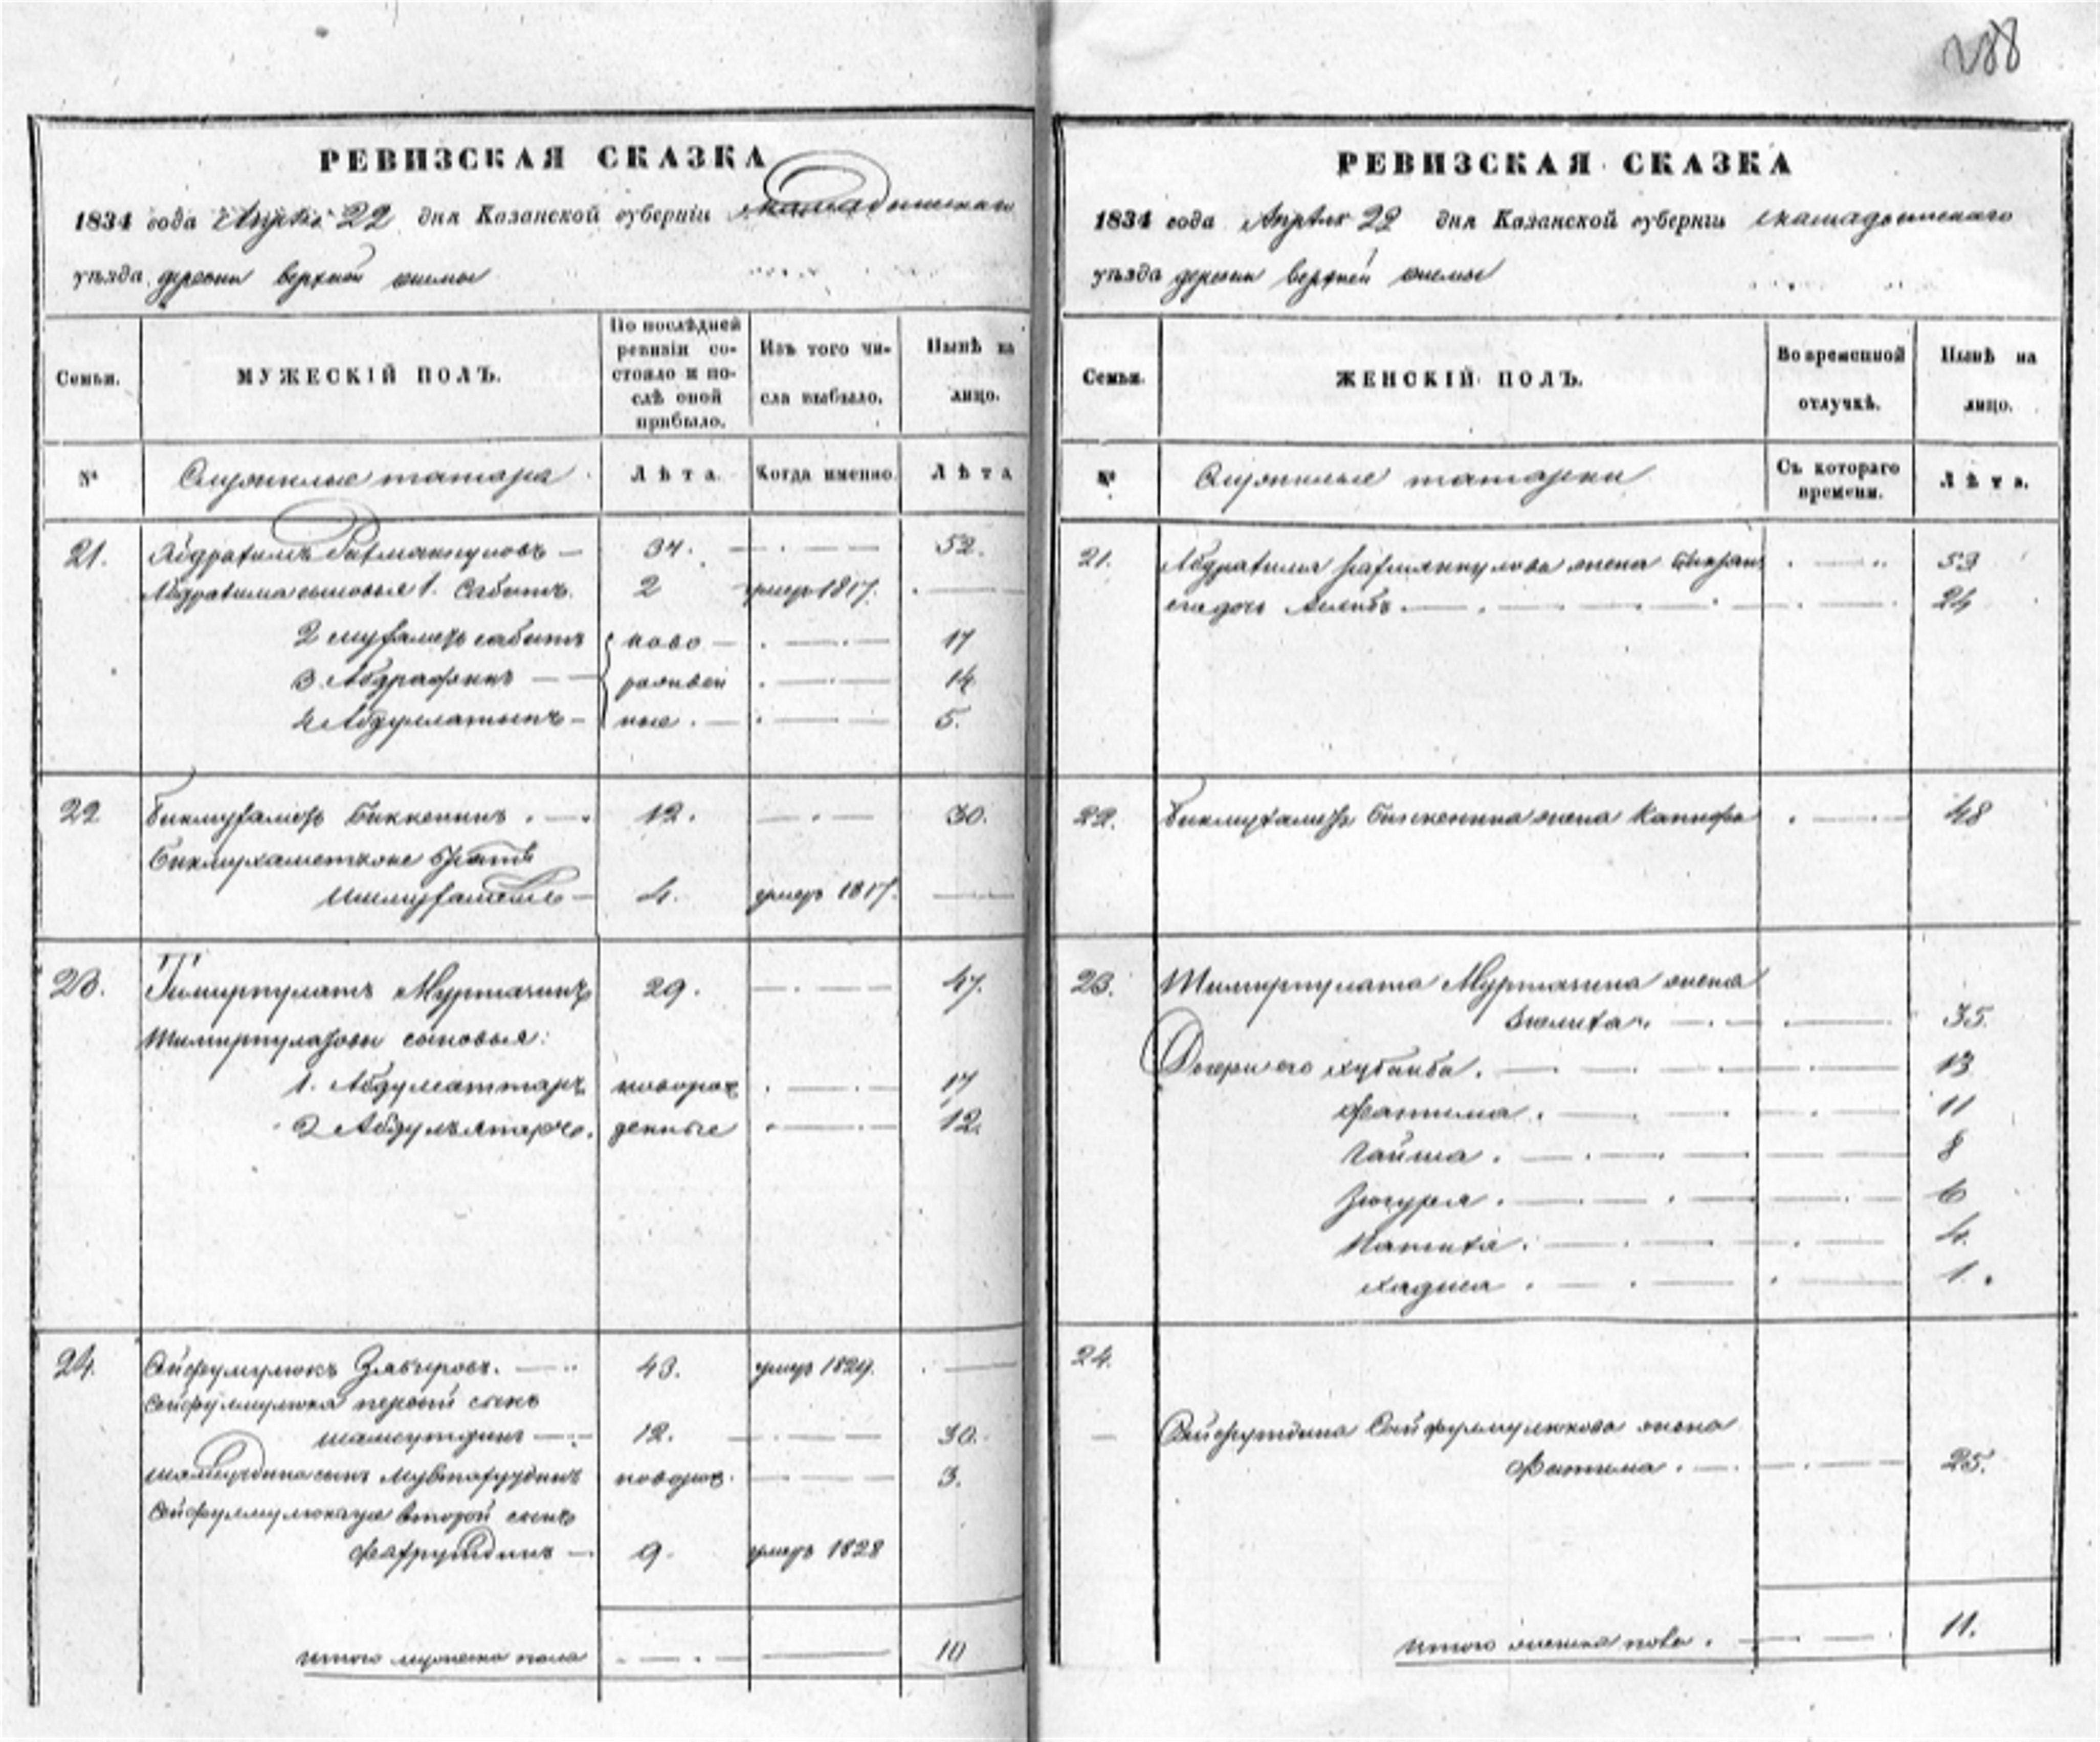 288
РЕВИЗСКАЯ СКАЗКА
1834 года Апреля 22 дня Казанской губерніи Мамадышскаго
уѣзда деревни верхней
Семьи.
МУЖЕСКІЙ ПОЛЪ.
По послѣдней ревизіи состояло и послѣ оной прибыло.
Изъ того числа выбыло.
Нынѣ на лицо.
№
Служилые татара
Лѣта.
Когда именно.
Лѣта
21. Абдрахимъ Рахманкуловъ — 34. 52.
Абдрахима сыновья 1. Сабитъ. 2 умеръ 1817.
2 мухаметь сабитъ ново — 17
3 — рожден 14
4 Абдуллатыпъ — ные. 5.
22 Бикмухаметь Биккенинъ 12. 30.
Бикмухаметковъ братъ
— 4. умеръ 1817.
23. Тимирпулатъ Муртазинъ 29. 47.
Тимирпулатовы сыновья:
1. Абдулсаттаръ новорож 17
2 денные 12.
24. Сейфулмулюкъ 43. умеръ 1829.
Сейфулмулюка первый сынъ
Шамсутдинъ — 12. 30.
сынъ новорож. 3.
второй сынъ
Фахрутдинъ — 9. умеръ 1828
итого мужеска пола 10
РЕВИЗСКАЯ СКАЗКА
1834 года Апреля 22 дня Казанской губерніи Мамадышскаго
уѣзда деревни верхней
Семьи.
ЖЕНСКІЙ ПОЛЪ.
Во временной отлучкѣ.
Нынѣ на лицо.
№
Служилые татарки
Съ котораго времени.
Лѣта.
21. Абдрахима Рахманкулова жена 53
его дочь 24
22. Бикмухаметя Биккенина жена 48
23. Тимирпулата Муртазина жена
Зюлиха 35.
Дочери его Хубайба. 13
Фатима. 11
Гайша. 8
Зюгурея. 6
4.
Хадиса. 1.
24.
— Сейфутдина Сейфулмулюкова жена
Фатима. 25.
итого женска пола. 11.